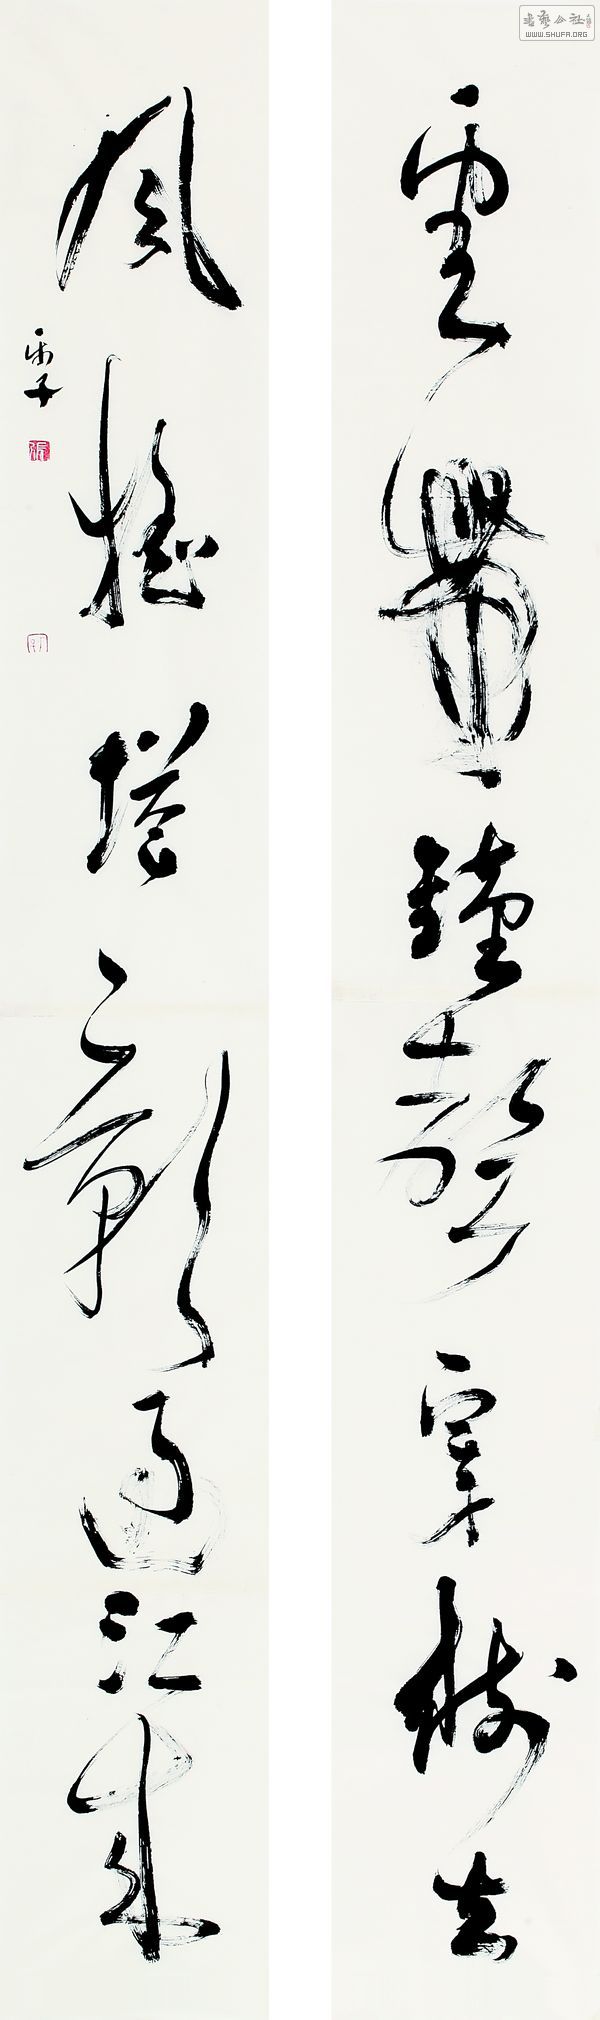 雲帶鐘聲穿樹去
風搖塔影過江來
乘子
书艺公社
WWW.SHUFA.ORG